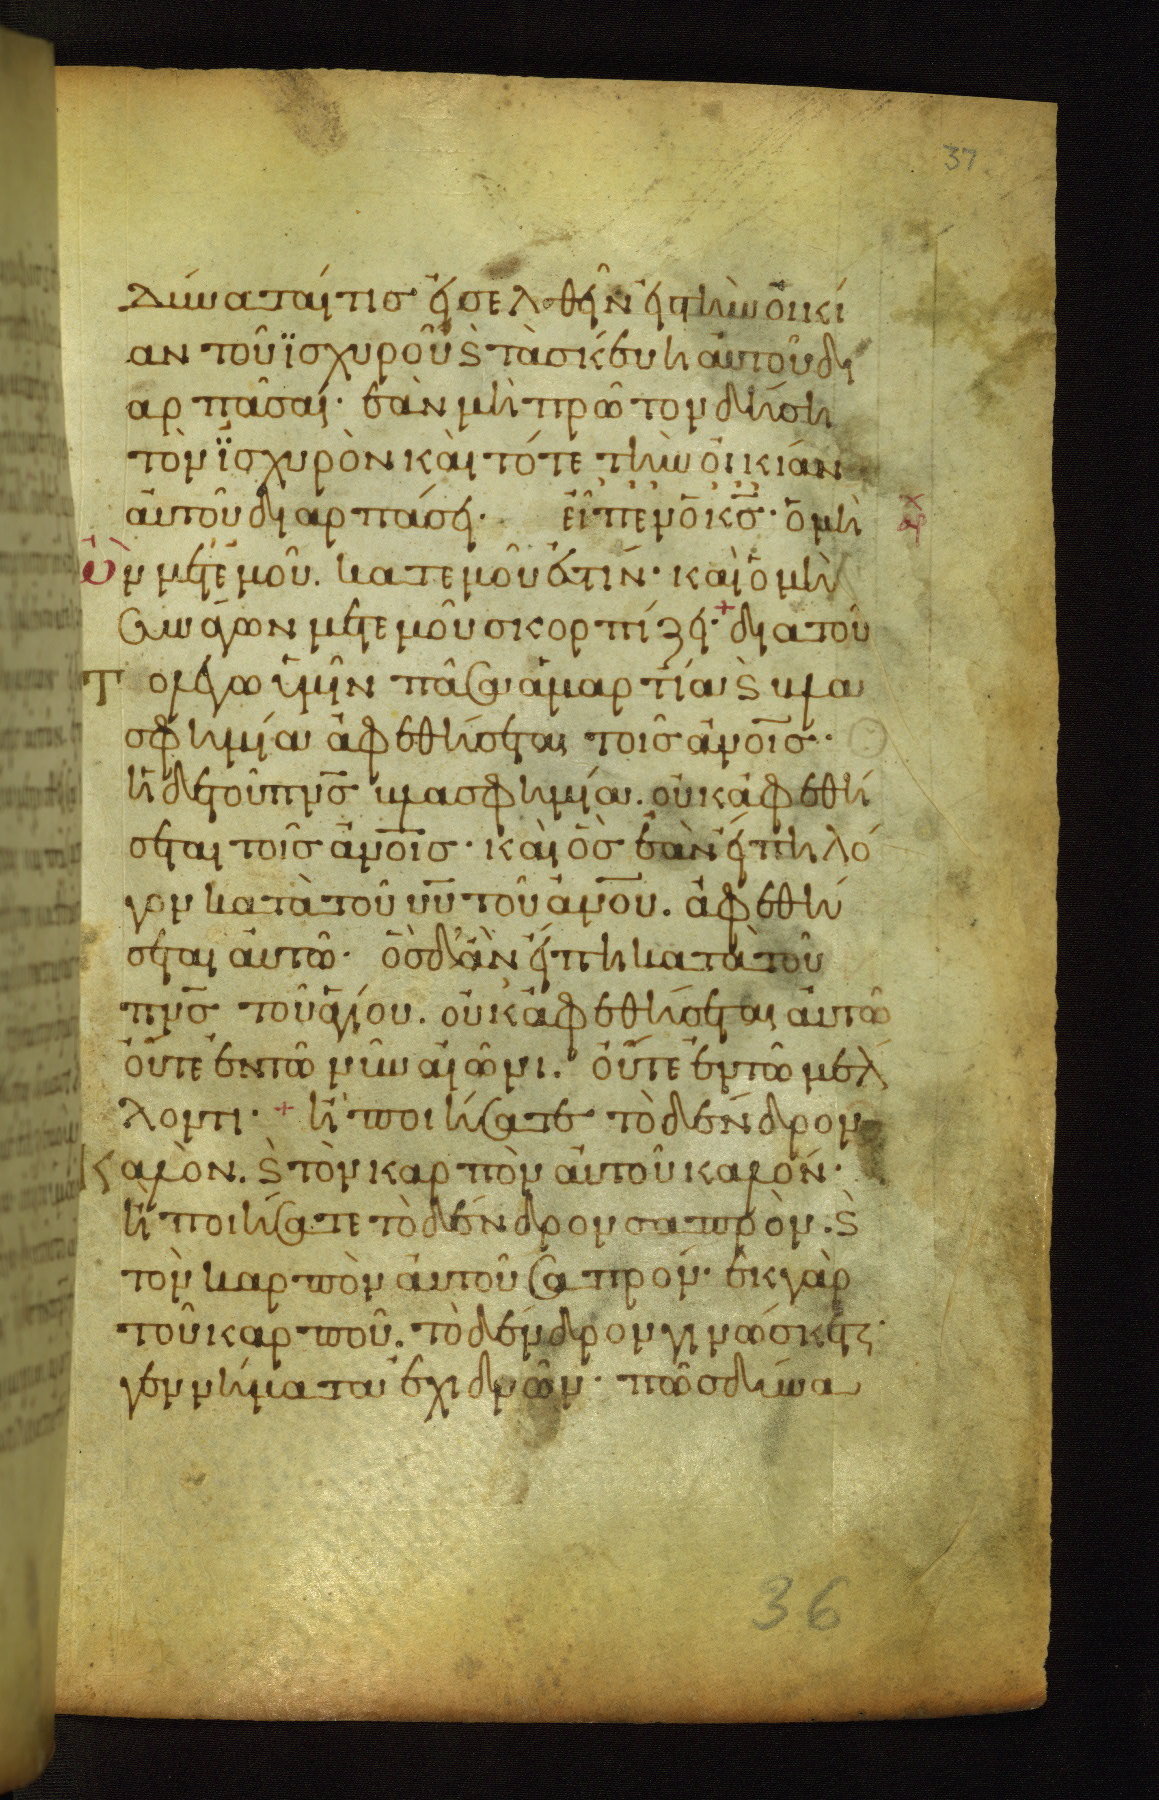 37
δύναταί τισ εἰσελθεῖν εἰς τὴν οἰκί
αν τοῦ ἰσχυροῦ ϗ τὰ σκέυη ἀυτοῦ δι
αρπᾶσαι· ἐὰν μὴ πρῶτον δήση
τὸν ἰσχυρὸν καὶ τότε τὴν οἰκίαν
ἀυτοῦ διαρπάσει· εἶπεν ὁ κσ· ὁ μὴ
ὢν μετ ἐμοῦ. κατ ἐμοῦ ἐστίν· καὶ ὁ μὴ
συνάγων μετ ἐμοῦ σκορπίζει· διατοῦ
το λέγω ὑμῖν πᾶσα ἁμαρτία ϗ βλα
σφημία ἀφεθήσεται τοῖσ ἀνοισ·
ἡ δὲ τοῦ πνσ βλασφημία. οὐκ ἀφεθή
σεται τοῖσ ἀνοισ· καὶ ὃσ ἐὰν εἴπη λό
γον κατὰ τοῦ υυ τοῦ ἀνου. ἀφεθή
σεται ἀυτῶ· ὃσ δ ἂν εἴπη κατὰ τοῦ
πνσ τοῦ ἁγίου. οὐκ ἀφεθήσεται ἀυτῶ
ὄυτε ἐν τῶ νῦν αἰῶνι. ὄυτε ἐν τῶ μέλ
λοντι· + ἢ ποιήσατε τὸ δένδρον
καλὸν. ϗ τὸν καρπὸν ἀυτοῦ καλόν·
ἢ ποιήσατε τὸ δένδρον σαπρὸν. ϗ
τὸν καρπὸν ἀυτοῦ σαπρόν· ἐκ γὰρ
τοῦ καρποῦ. τὸ δένδρον γινώσκεται·
γεννήματα ἐχιδνῶν· πῶσ δύνα
36